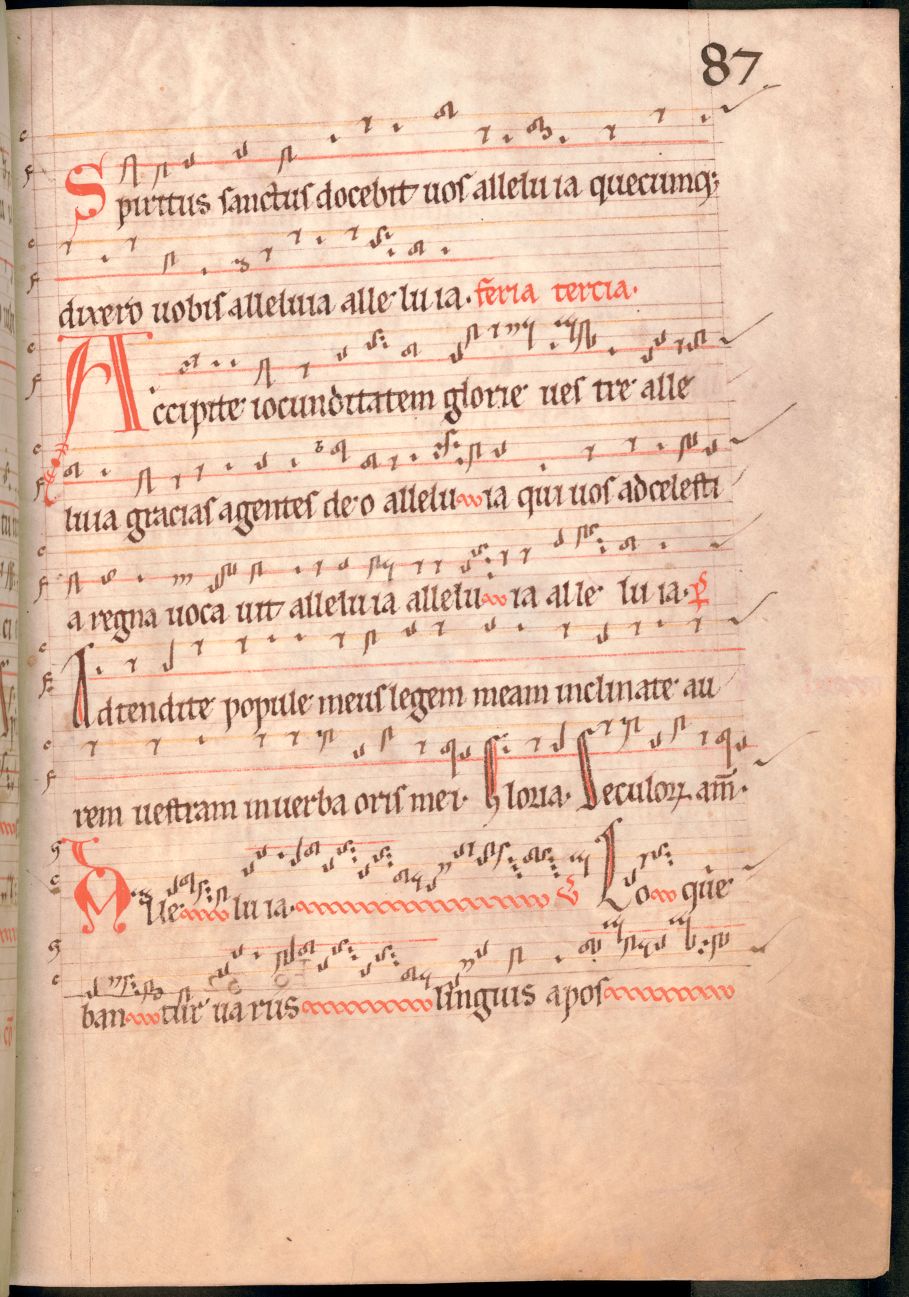 87
Spiritus sanctus docebit uos allelu ia quecumq;
dixero uobis alleluia alle lu ia. feria tercia.
Accipite iocunditatem glorie ues tre alle
luia gracias agentes de o allelu ia qui uos ad celesti
a regna uoca uit allelu ia allelu ia al le lu ia. p̄s
Adtendite popule meus legem meam inclinate au
rem uestram in uerba oris mei. Gloria. Seculoꝝ am̄.
Alle lu ia. V Lo que
ban tur ua rus linguis apos